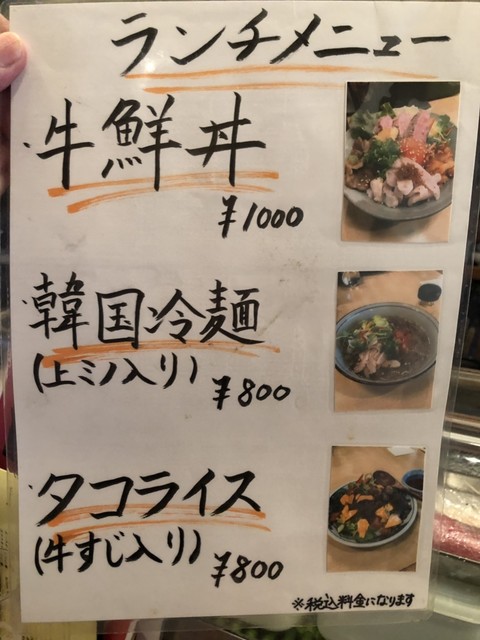 ランチメニュー
・牛鮮丼
¥1000
・韓国冷麺
(上ミノ入り)
¥800
・タコライス
(牛すじ入り)
¥800
※税込料金になります